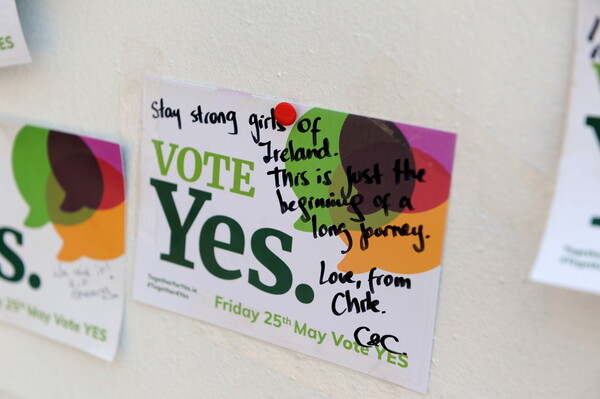 ES
Stay strong girls of
Ireland.
This is just the
beginning of a
long journey.
Love, from
Chile.
C&C.
VOTE
Yes.
TogetherForYes.ie
#Together4Yes
Friday 25th May Vote YES
s.
We did it!
25th May Vote YES
Y
Togethe
#Togeth